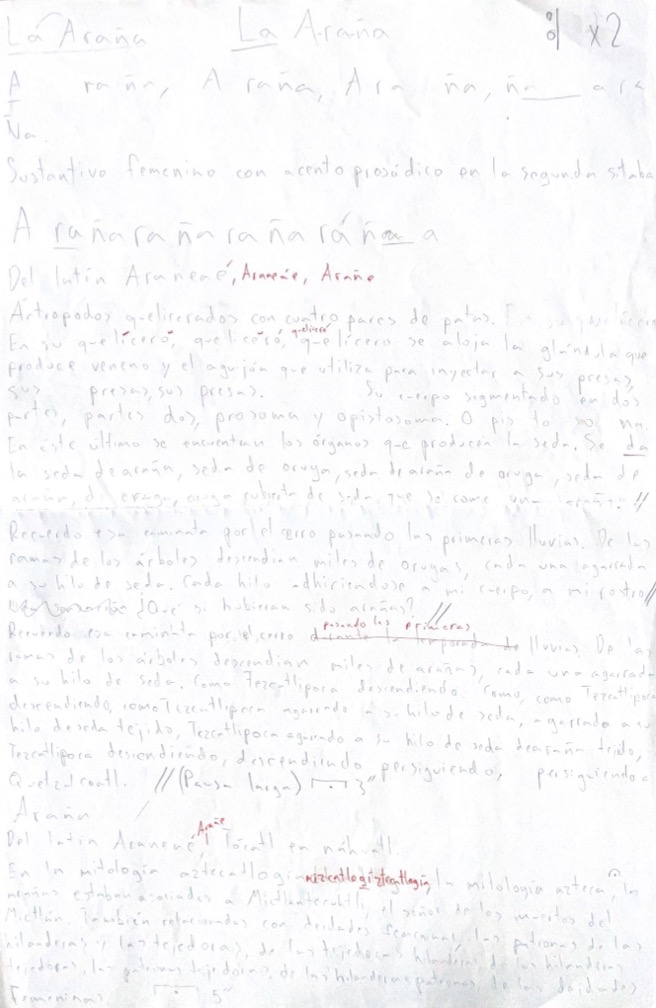 La Araña La Araña x2
A raña, A raña, Ara ña, ña___ ara
Ña.
Sustantivo femenino con acento prosódico en la segunda sílaba
A rañarañarañaráñaa a
Del latín Araneaé, Araneáe, Arañe
Artropodos quelicerados con cuatro pares de patas.
En su quelíceró, quelíceró, quelicero quelícero se aloja la glándula que
produce veneno y el aguijón que utiliza para inyectar a sus presas,
sus presas, sus presas. Su cuerpo segmentado en dos
partes, partes dos, prosoma y opistosoma. O pis to so ma.
En éste último se encuentran los órganos que producen la seda. Se da
la seda de araña, seda de oruga, seda de araña de oruga, seda de
araña, de oruga, oruga cubierta de seda, que se come una araña. //
Recuerdo esa caminata por el cerro pasando las primeras lluvias. De las
ramas de los árboles descendian miles de orugas, cada una agarrada
a su hilo de seda. Cada hilo adhiriendose a mi cuerpo, a mi rostro //
¿Qué si hubieran sido arañas? //
pasando las primeras
Recuerdo esa caminata por el cerro durante la temporada de lluvias. De las
ramas de los árboles descendian miles de arañas, cada una agarrada
a su hilo de seda. Como Tezcatlipoca descendiendo. Como, como Tezcatlipoca
descendiendo, como Tezcatlipoca agarrado a su hilo de seda, agarrado a su
hilo de seda tejido, Tezcatlipoca agarrado a su hilo de seda de araña tejido,
Tezcatlipoca descendiendo, descendiendo persiguiendo, persiguiendo a
Quetzalcoatl. // (Pausa larga) 3"
Araña
Del latín Araneaé, Arañe Tócatl en náhuatl.
En la mitología aztecatlogía la mitología azteca, las
arañas estaban asociadas a Mictlantecuhtli, el señor de los muertos del
Mictlán. También relacionadas con deidades femeninas, las patronas de las
hilanderas y las tejedoras, de las tejedoras hilanderas, de las hilanderas
tejedoras, las patronas tejedoras, de las hilanderas patronas, de las deidades
femeninas 5"